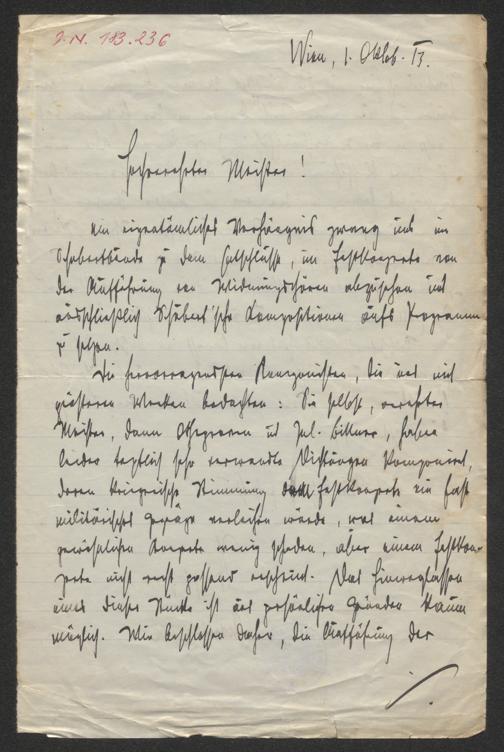 J.N. 183.236
Wien, 1. Oktob. 13.
Hochverehrter Meister!
Ein eigentümliches Verhängnis zwang uns im
Schubertbunde zu dem Entschlusse, im Festkonzerte von
der Aufführung von Widmungschören abzusehen und
ausschließlich Schubert'sche Kompositionen aufs Programm
zu setzen.
Die hervorragendsten Komponisten, die uns mit
größeren Werken bedachten: Sie selbst, verehrter
Meister, dann Othegraven und Jul. Bittner, haben
leider textlich sehr verwandte Dichtungen komponiert,
deren kriegerische Stimmung dem Festkonzerte ein fast
militärisches Gepräge verleihen würde, was einem
gewöhnlichen Konzerte wenig schaden, aber einem Festkon-
zerte nicht recht passend erscheint. Das Hinweglassen
eines dieser Werke ist aus persönlichen Gründen kaum
möglich. Wir beschlossen daher, die Aufführung der
./.